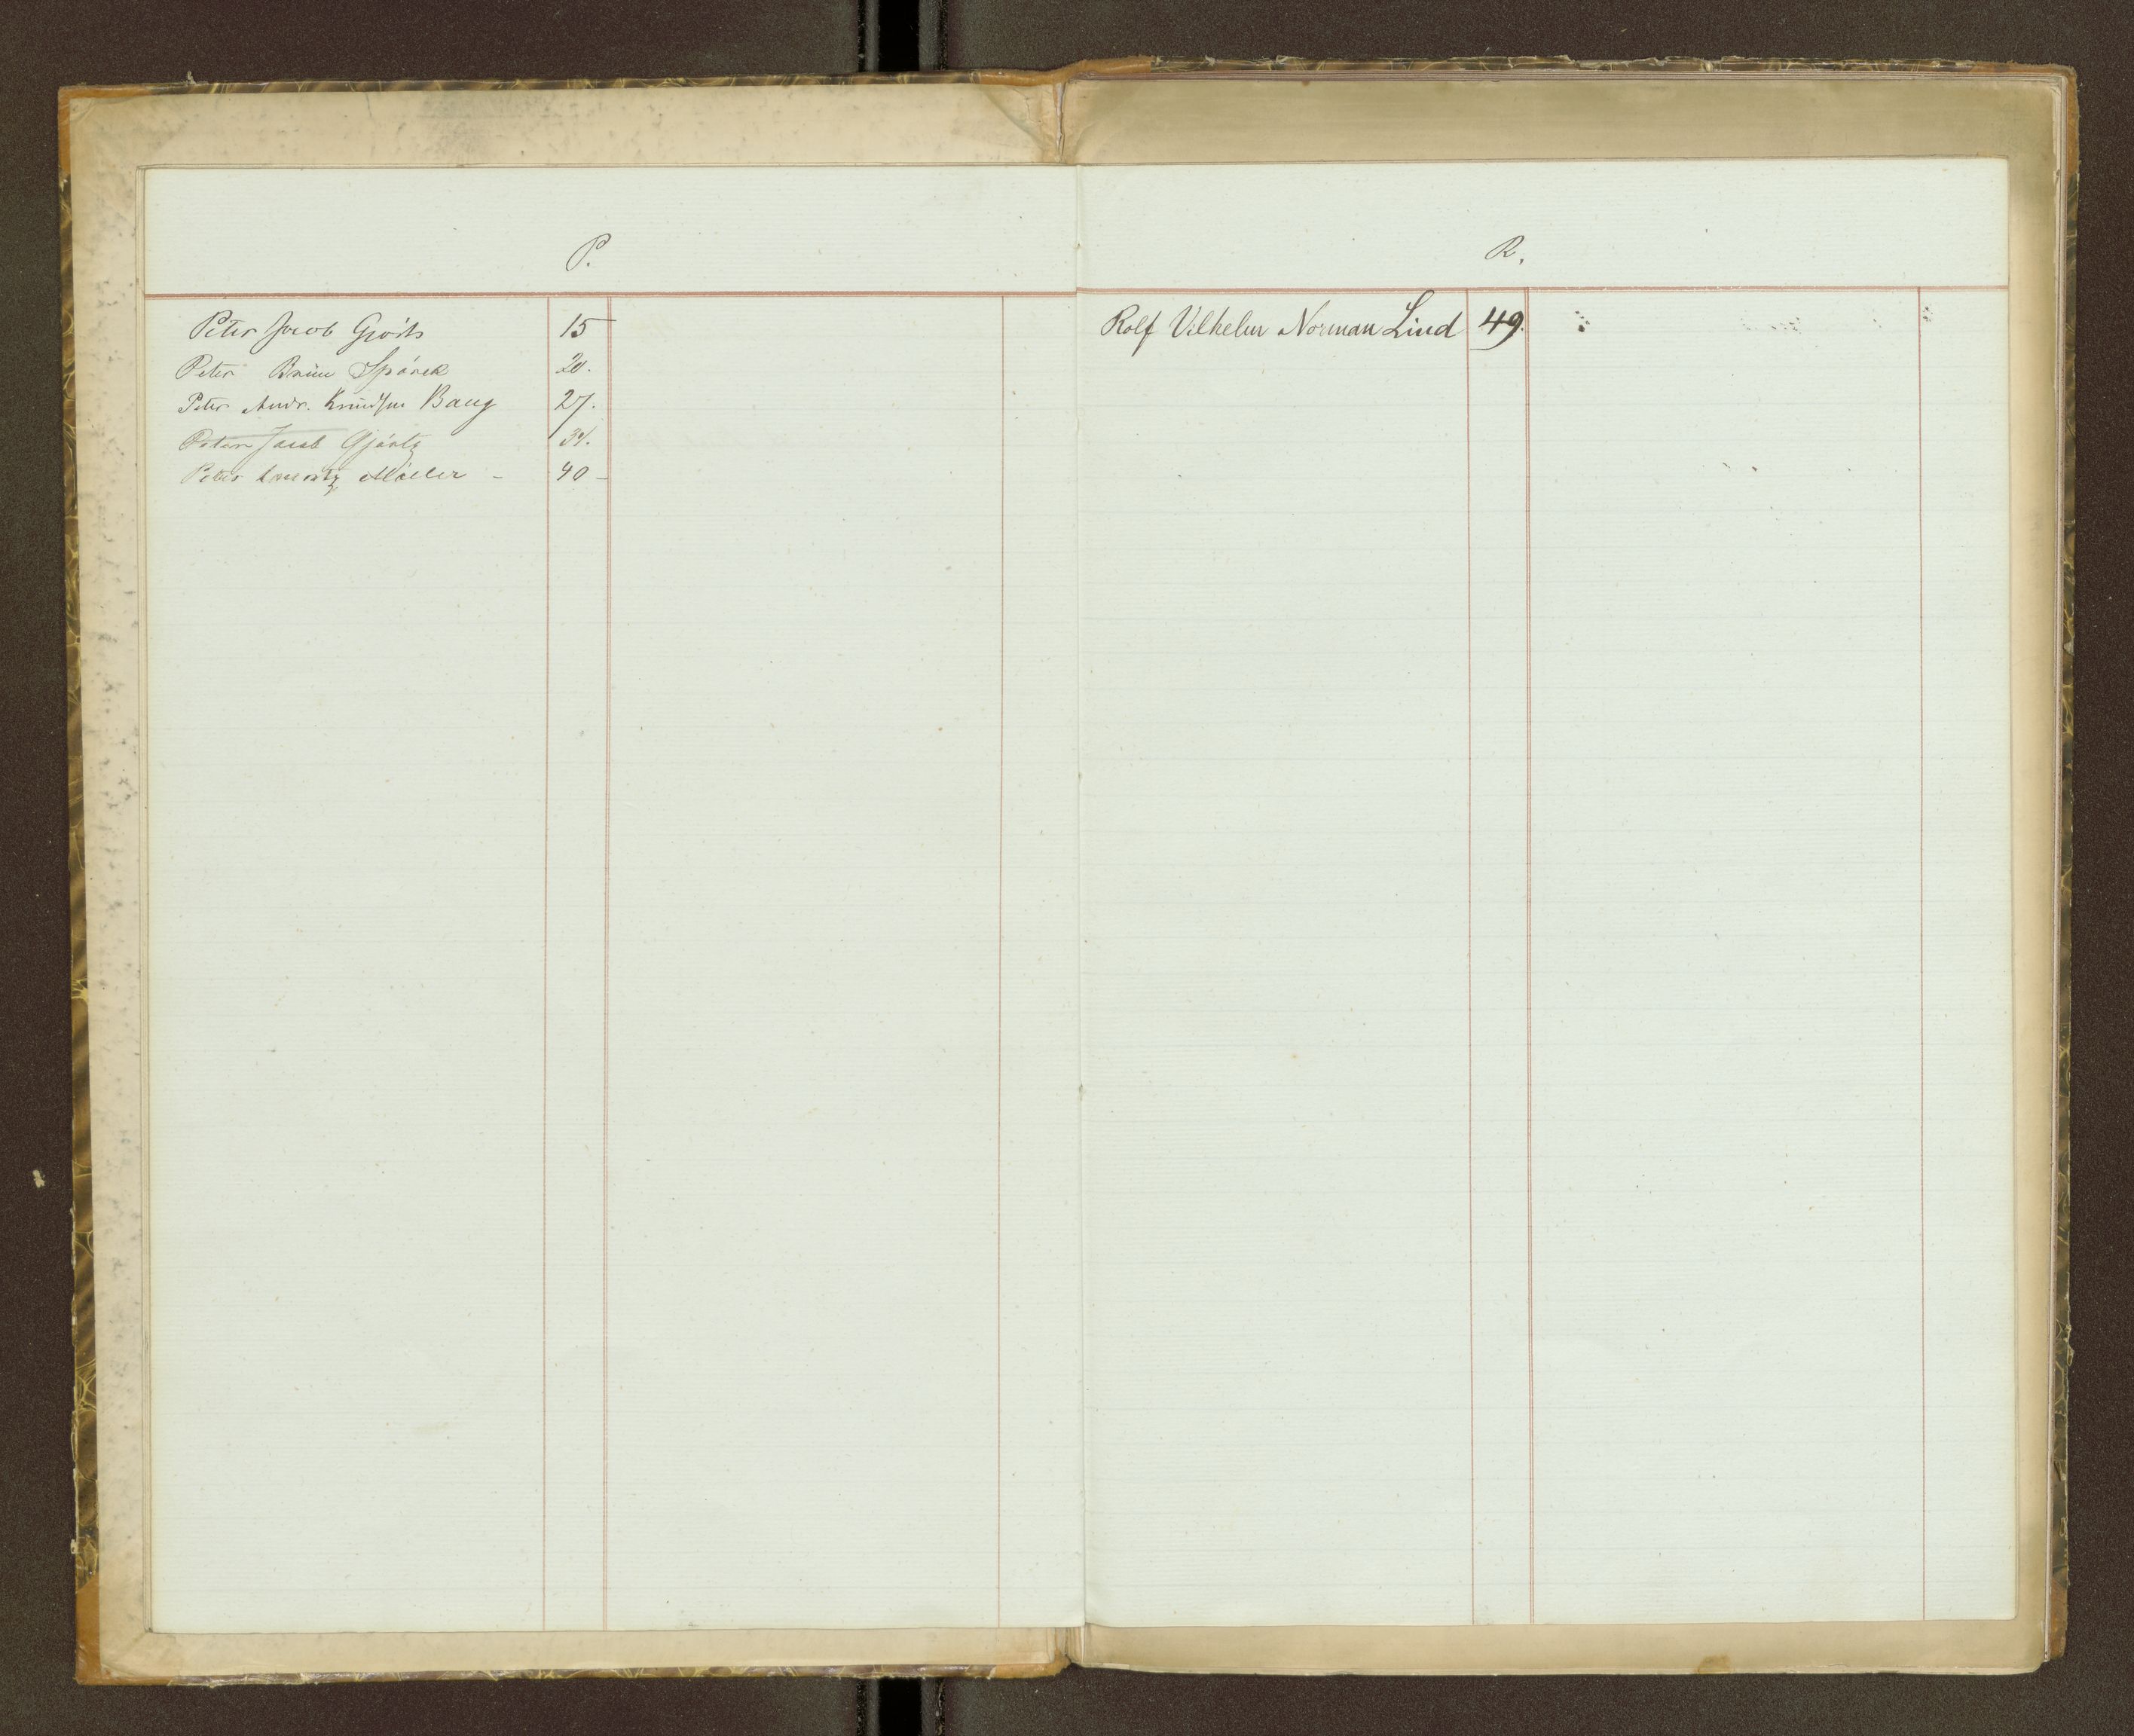 P.
Peter Jacob 15
Peter Bruun Spärck 20.
Peter Andr. Knudsen Baug 27.
Peter Jacob Gjörtz
Peter Lauritz Möller - 40 -
R.
Rolf Vilhelm Norman Lind 49.